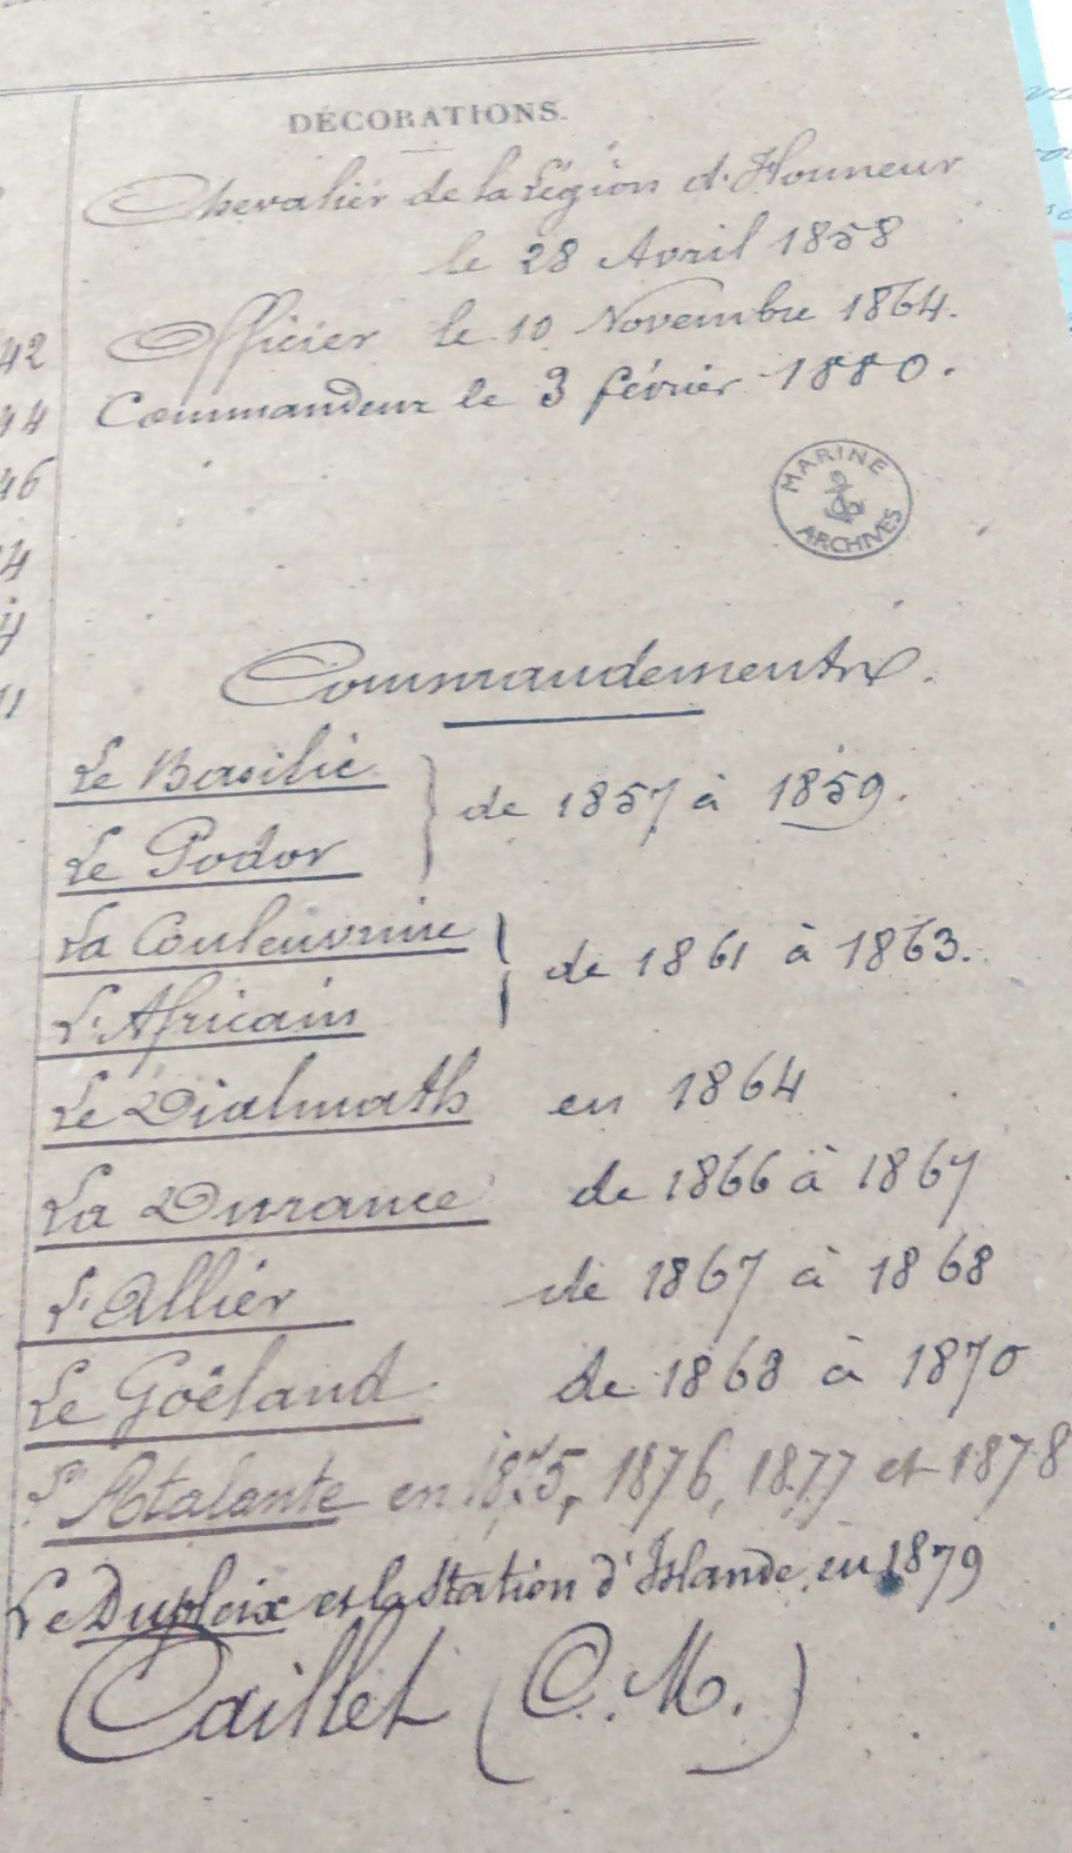 DÉCORATIONS.
Chevalier de la Légion d'Honneur
le 28 Avril 1858
Officier le 10 Novembre 1864.
Commandeur le 3 février 1880.
42
44
46
MARINE
ARCHIVES
Commandements.
Le Basilic
Le Podor
de 1857 à 1859.
La Couleuvrine
L'Africain
de 1861 à 1863.
Le Dialmath en 1864
La Durance de 1866 à 1867
L'Allier de 1867 à 1868
Le Goëland de 1868 à 1870
L'Atalante en 1875, 1876, 1877 et 1878
Le Dupleix et la Station d'Islande, en 1879
Caillet (C. M.)